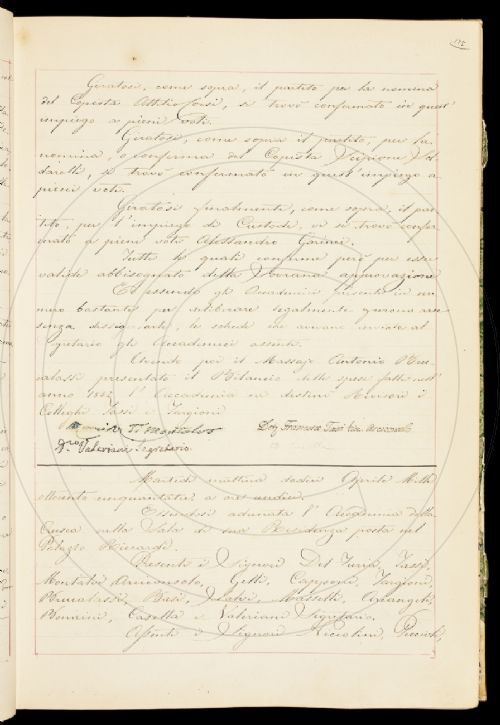 Giratosi, come sopra, il partito per la nomina
del Copista Attilio si trovò confermato in quest'
impiego a pieni voti.
Giratosi, come sopra il partito, per la
nomina, o conferma del Copista Scipione
si trovò confermato in quest'impiego a
pieni voti.
Giratosi finalmente, come sopra, il par-
tito, per l'impiego di Custode, vi si trovò confer-
mato a pieni voti Alessandro
Tutte le quali conferme però per esser
valide abbisognato della Sovrana approvazione
Ed essendo gli Accademici presenti in nu-
mero bastante per deliberare legalmente
senza le schede che avevano inviato al
Segretario gli Accademici assenti.
Avendo poi il Massajo Antonio
presentato il Bilancio delle spese fatte nell'
anno l'Accademia ha destinati Revisori i
Colleghi Tassi e Targioni
Segretario
Dott. Francesco
Martedì mattina dodici Aprile Mille
ottocento cinquantatre a ore undici.
Essendosi adunata l'Accademia della
Crusca nella Sala di sua Residenza posta nel
Palazzo Riccardi.
Presenti i Signori Del Furia, Tassi,
Montalvi Arciconsolo, Gelli, Capponi, Targioni,
Brucalassi, Basi, Salvi, Masselli, Arcangeli,
Bonaini, Casella e Valeriani Segretario.
Assenti i Signori Niccolini,